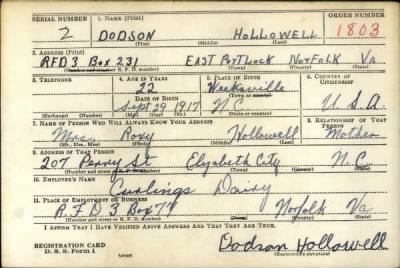 SERIAL NUMBER 1. NAME (Print) ORDER NUMBER
2 DODSON HOLLOWELL 1803
(First) (Middle) (Last)
2. ADDRESS (Print)
RFD 3 Box 231 EAST PORTLOCK NORFOLK VA
(Number and street or R. F. D. number) (Town) (County) (State)
3. TELEPHONE 4. AGE IN YEARS 5. PLACE OF BIRTH 6. COUNTRY OF CITIZENSHIP
22 Weeksville
DATE OF BIRTH (Town or county)
Sept 29 1917 N.C. U.S.A
(Exchange) (Number) (Mo.) (Day) (Yr.) (State or country)
7. NAME OF PERSON WHO WILL ALWAYS KNOW YOUR ADDRESS 8. RELATIONSHIP OF THAT PERSON
Mrs. Roxy Hollowell Mother
(Mr., Mrs., Miss) (First) (Middle) (Last)
9. ADDRESS OF THAT PERSON
207 Perry St Elizabeth City N.C
(Number and street or R. F. D. number) (Town) (County) (State)
10. EMPLOYER'S NAME
Curlings Dairy
11. PLACE OF EMPLOYMENT OR BUSINESS
R.F.D 3 Box 77 Norfolk Va
(Number and street or R. F. D. number) (Town) (County) (State)
I AFFIRM THAT I HAVE VERIFIED ABOVE ANSWERS AND THAT THEY ARE TRUE.
REGISTRATION CARD
D. S. S. Form 1 (over) Dodson Hollowell
(Registrant's signature)